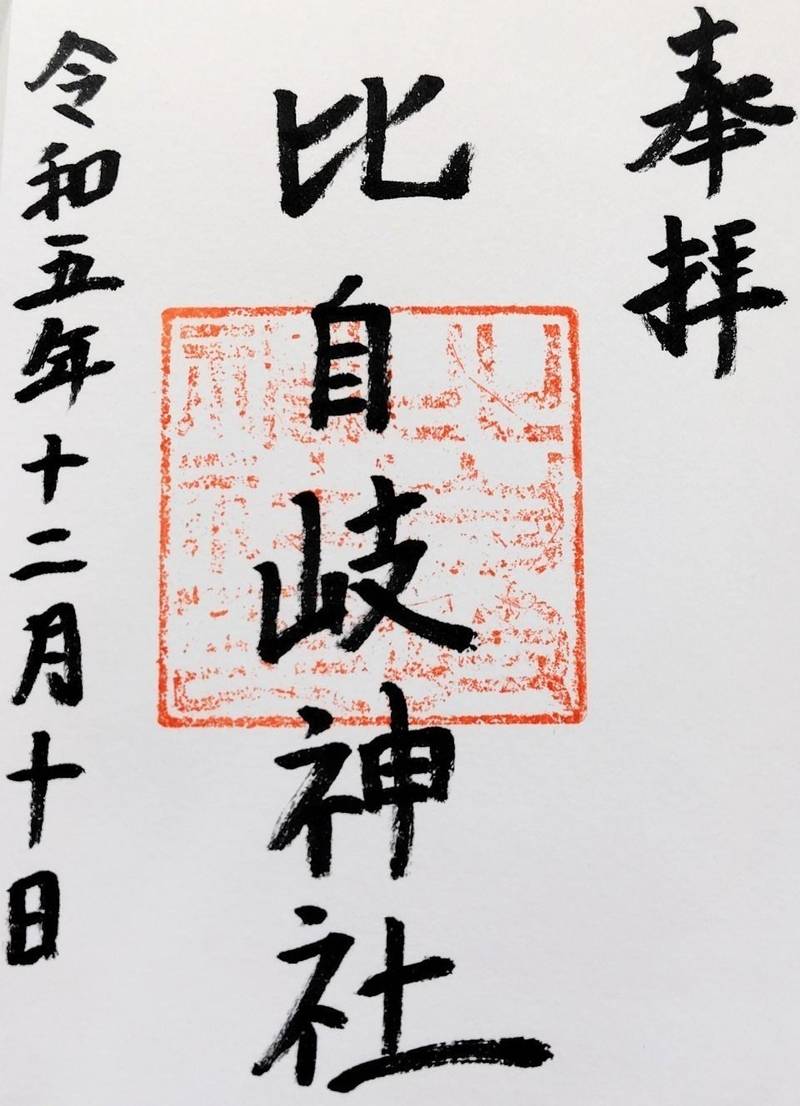 奉拝
比自岐神社
令和五年十二月十日